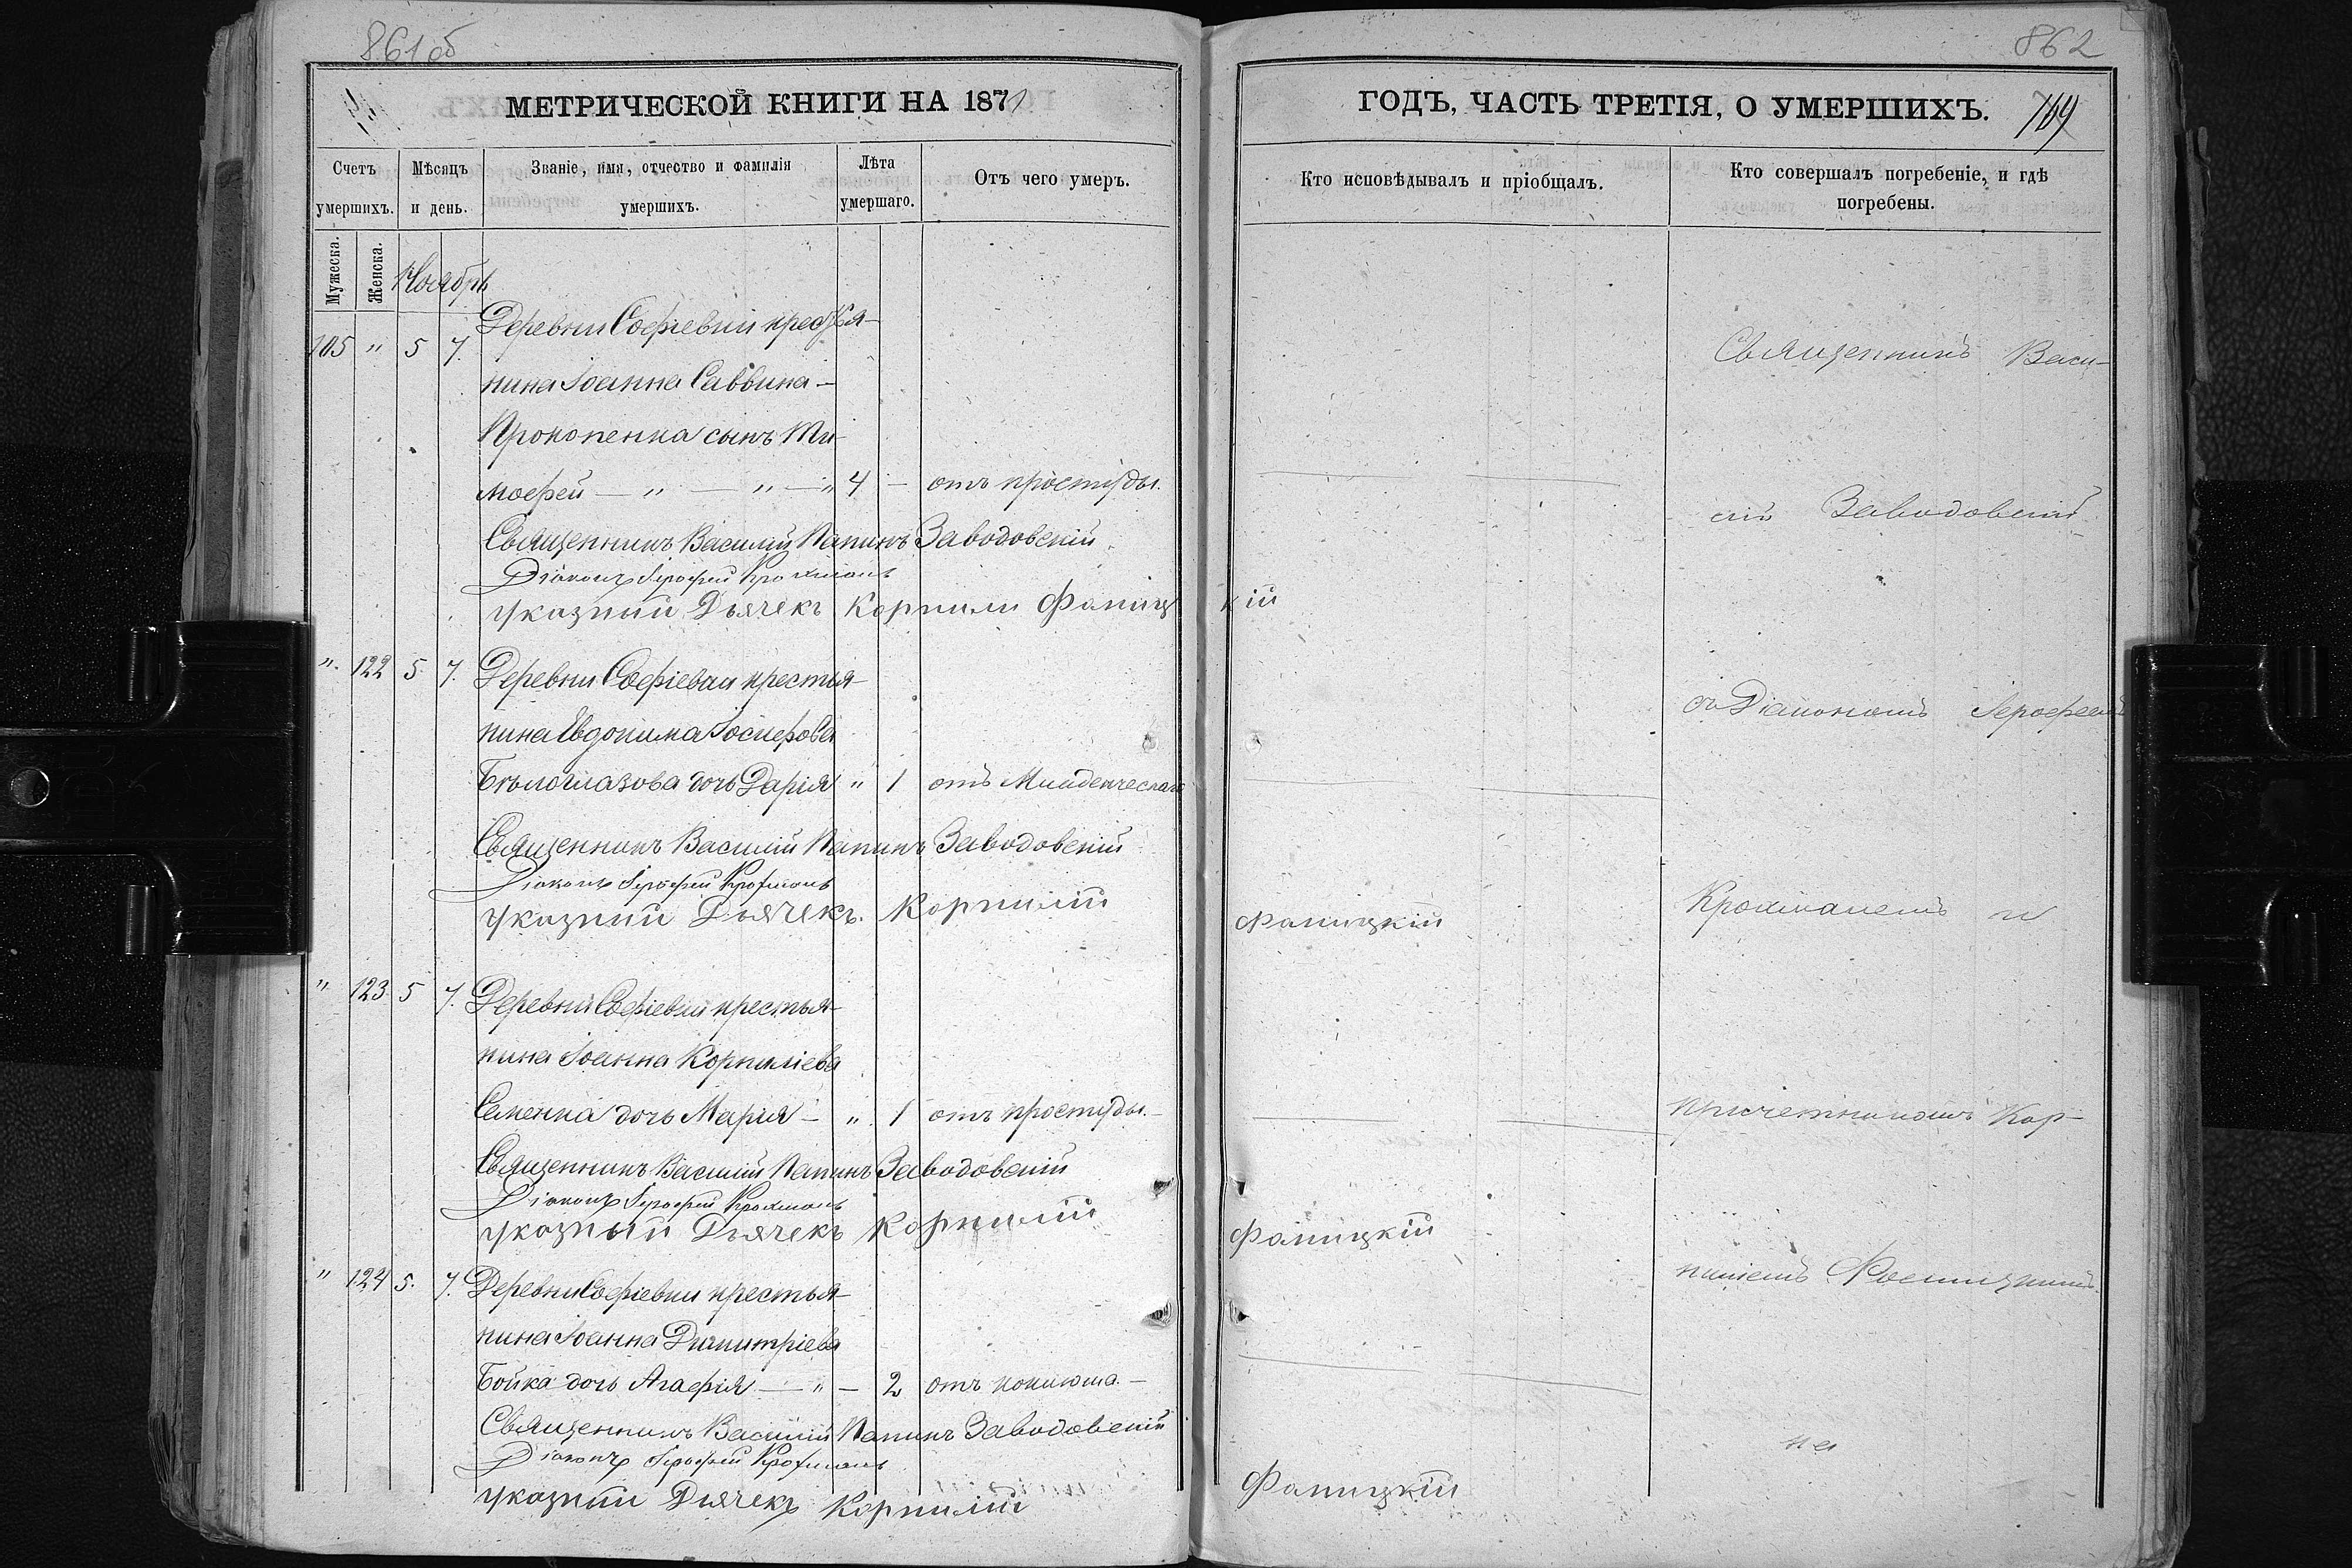 861 об
МЕТРИЧЕСКОЙ КНИГИ НА 1871
Счетъ умершихъ.
Мѣсяцъ и день.
Званіе, имя, отчество и фамилія умершихъ.
Лѣта умершаго.
Отъ чего умеръ.
Мужеска.
Женска.
Ноябрь
105 " 5 7. Деревни Софіевки крестья-
нина Іоанна Саввина -
Прокопенка сынъ Ти-
мофей — " — " — " 4 - отъ простуды.
Священникъ Василій Заводовскій
Діаконъ Іерофей Крохмаль
Указный Дьячекъ Корнилий
кій
" 122 5 7. Деревни Софіевки крестья-
нина Евдокима Іосифова
Бѣлоглазова дочь Дарія " 1 отъ Младенческаго
Священникъ Василій Заводовскій
Діаконъ Іерофей Крохмаль
Указный Дьячекъ. Корнилій Фаницкій
" 123 5 7. Деревни Софіевки крестья-
нина Іоанна Корниліева
Семенка дочь Марія - " 1 отъ простуды.-
Священникъ Василій Заводовскій
Діаконъ Іерофей Крохмаль
Указный Дьячекъ Корнилій Фаницкій
" 124 5. 7. Деревни Софіевки крестья-
нина Іоанна Димитріева
Бойка дочь Агафія — " — 2 отъ коклюша.-
Священникъ Василій Заводовскій
Діаконъ Іерофей Крохмаль
Указный Дьячекъ Корнилій Фаницкій
862
ГОДЪ, ЧАСТЬ ТРЕТІЯ, О УМЕРШИХЪ.
Кто исповѣдывалъ и пріобщалъ.
Кто совершалъ погребеніе, и гдѣ погребены.
Священникъ Васи-
лій Заводовскій
съ Діакономъ Іерофеемъ
Крохмалемъ и
причетникомъ Кор-
ниліемъ Фаницкимъ
на